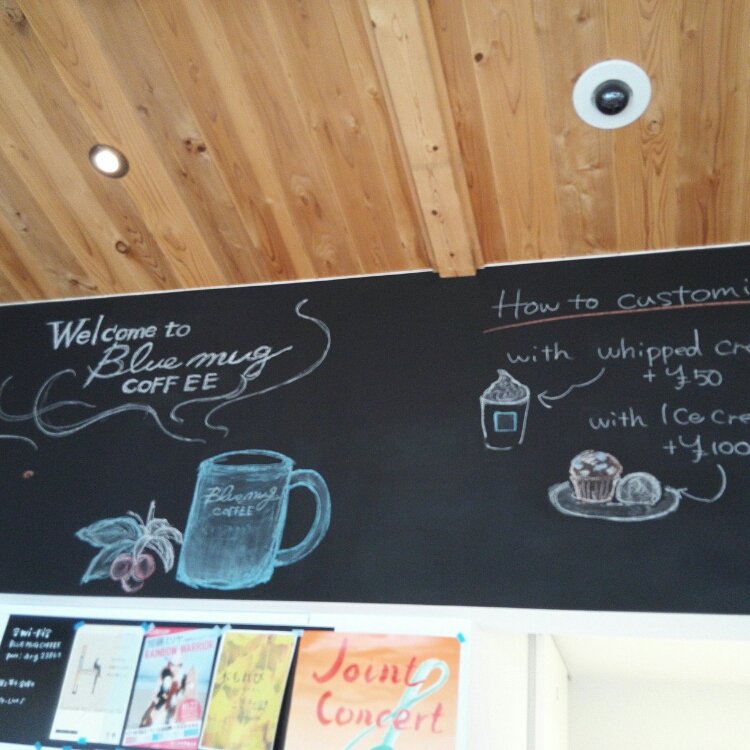 Welcome to
Blue mug
COFFEE
Blue mug
COFFEE
How to customi
with whipped cre
+¥50
with Ice cre
+¥100
BLUE MUG COFFEE
RAINBOW WARRIOR
木もれび
Joint
Concert